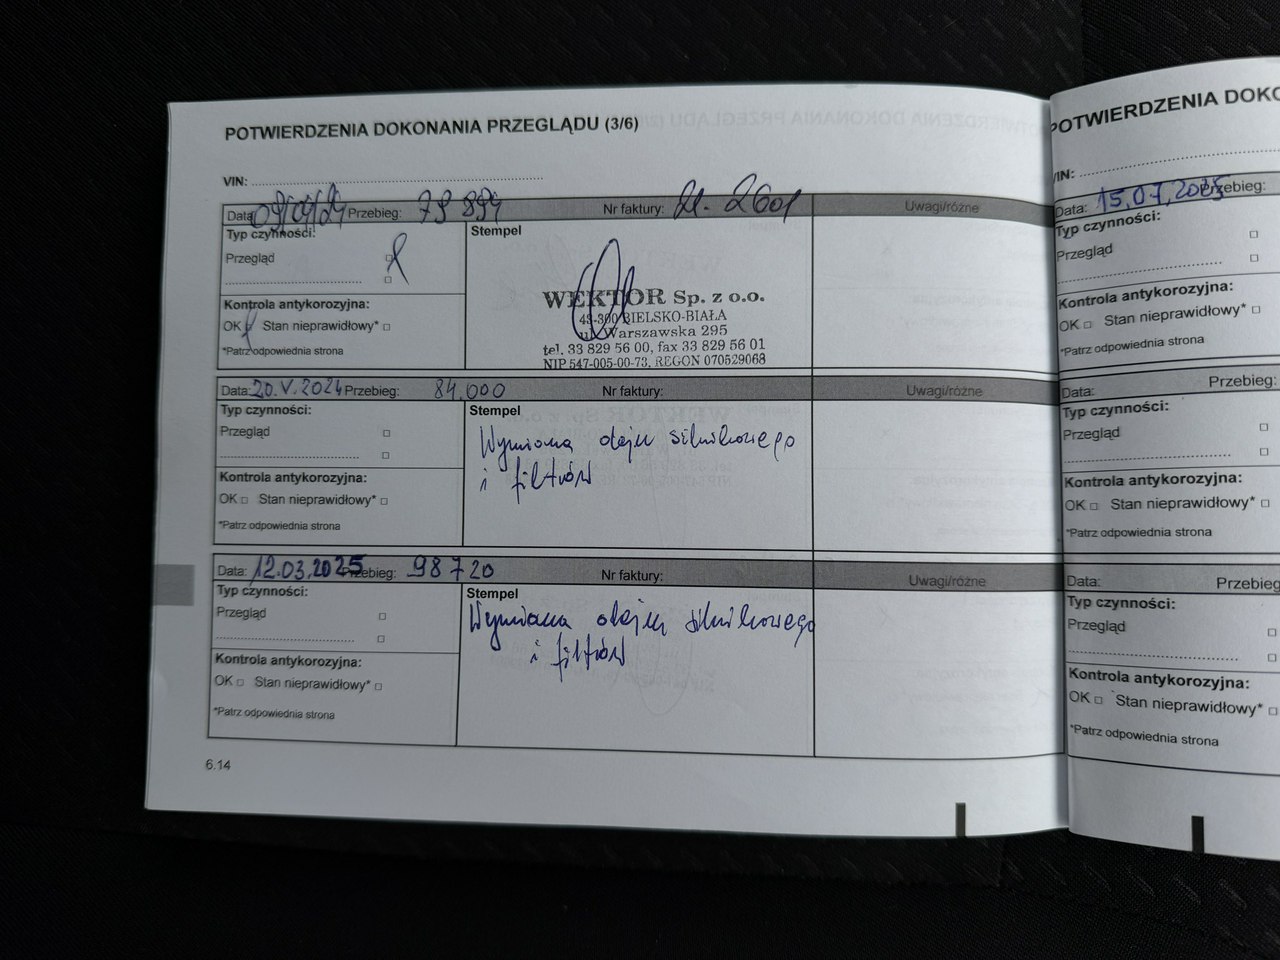 POTWIERDZENIA DOKONANIA PRZEGLĄDU (3/6)
VIN:
Data: Przebieg: 79 894 Nr faktury: 2601 Uwagi/różne
Typ czynności:
Przegląd
Stempel
WEKTOR Sp. z o.o.
43-300 BIELSKO-BIAŁA
ul. Warszawska 295
tel. 33 829 56 00, fax 33 829 56 01
NIP 547-005-00-73, REGON 070529068
Kontrola antykorozyjna:
OK Stan nieprawidłowy*
*Patrz odpowiednia strona
Data: 20.V.2024 Przebieg: 84.000 Nr faktury: Uwagi/różne
Typ czynności:
Przegląd
Stempel
Wymiana oleju silnikowego
i filtrów
Kontrola antykorozyjna:
OK Stan nieprawidłowy*
*Patrz odpowiednia strona
Data: 12.03.2025 Przebieg: 98720 Nr faktury: Uwagi/różne
Typ czynności:
Przegląd
Stempel
Wymiana oleju silnikowego
i filtrów
Kontrola antykorozyjna:
OK Stan nieprawidłowy*
*Patrz odpowiednia strona
6.14
POTWIERDZENIA
VIN:
Data: 15.07.2025 Przebieg:
Typ czynności:
Przegląd
Kontrola antykorozyjna:
OK Stan nieprawidłowy*
*Patrz odpowiednia strona
Data: Przebieg:
Typ czynności:
Przegląd
Kontrola antykorozyjna:
OK Stan nieprawidłowy*
*Patrz odpowiednia strona
Data: Przebieg
Typ czynności:
Przegląd
Kontrola antykorozyjna:
OK Stan nieprawidłowy*
*Patrz odpowiednia strona